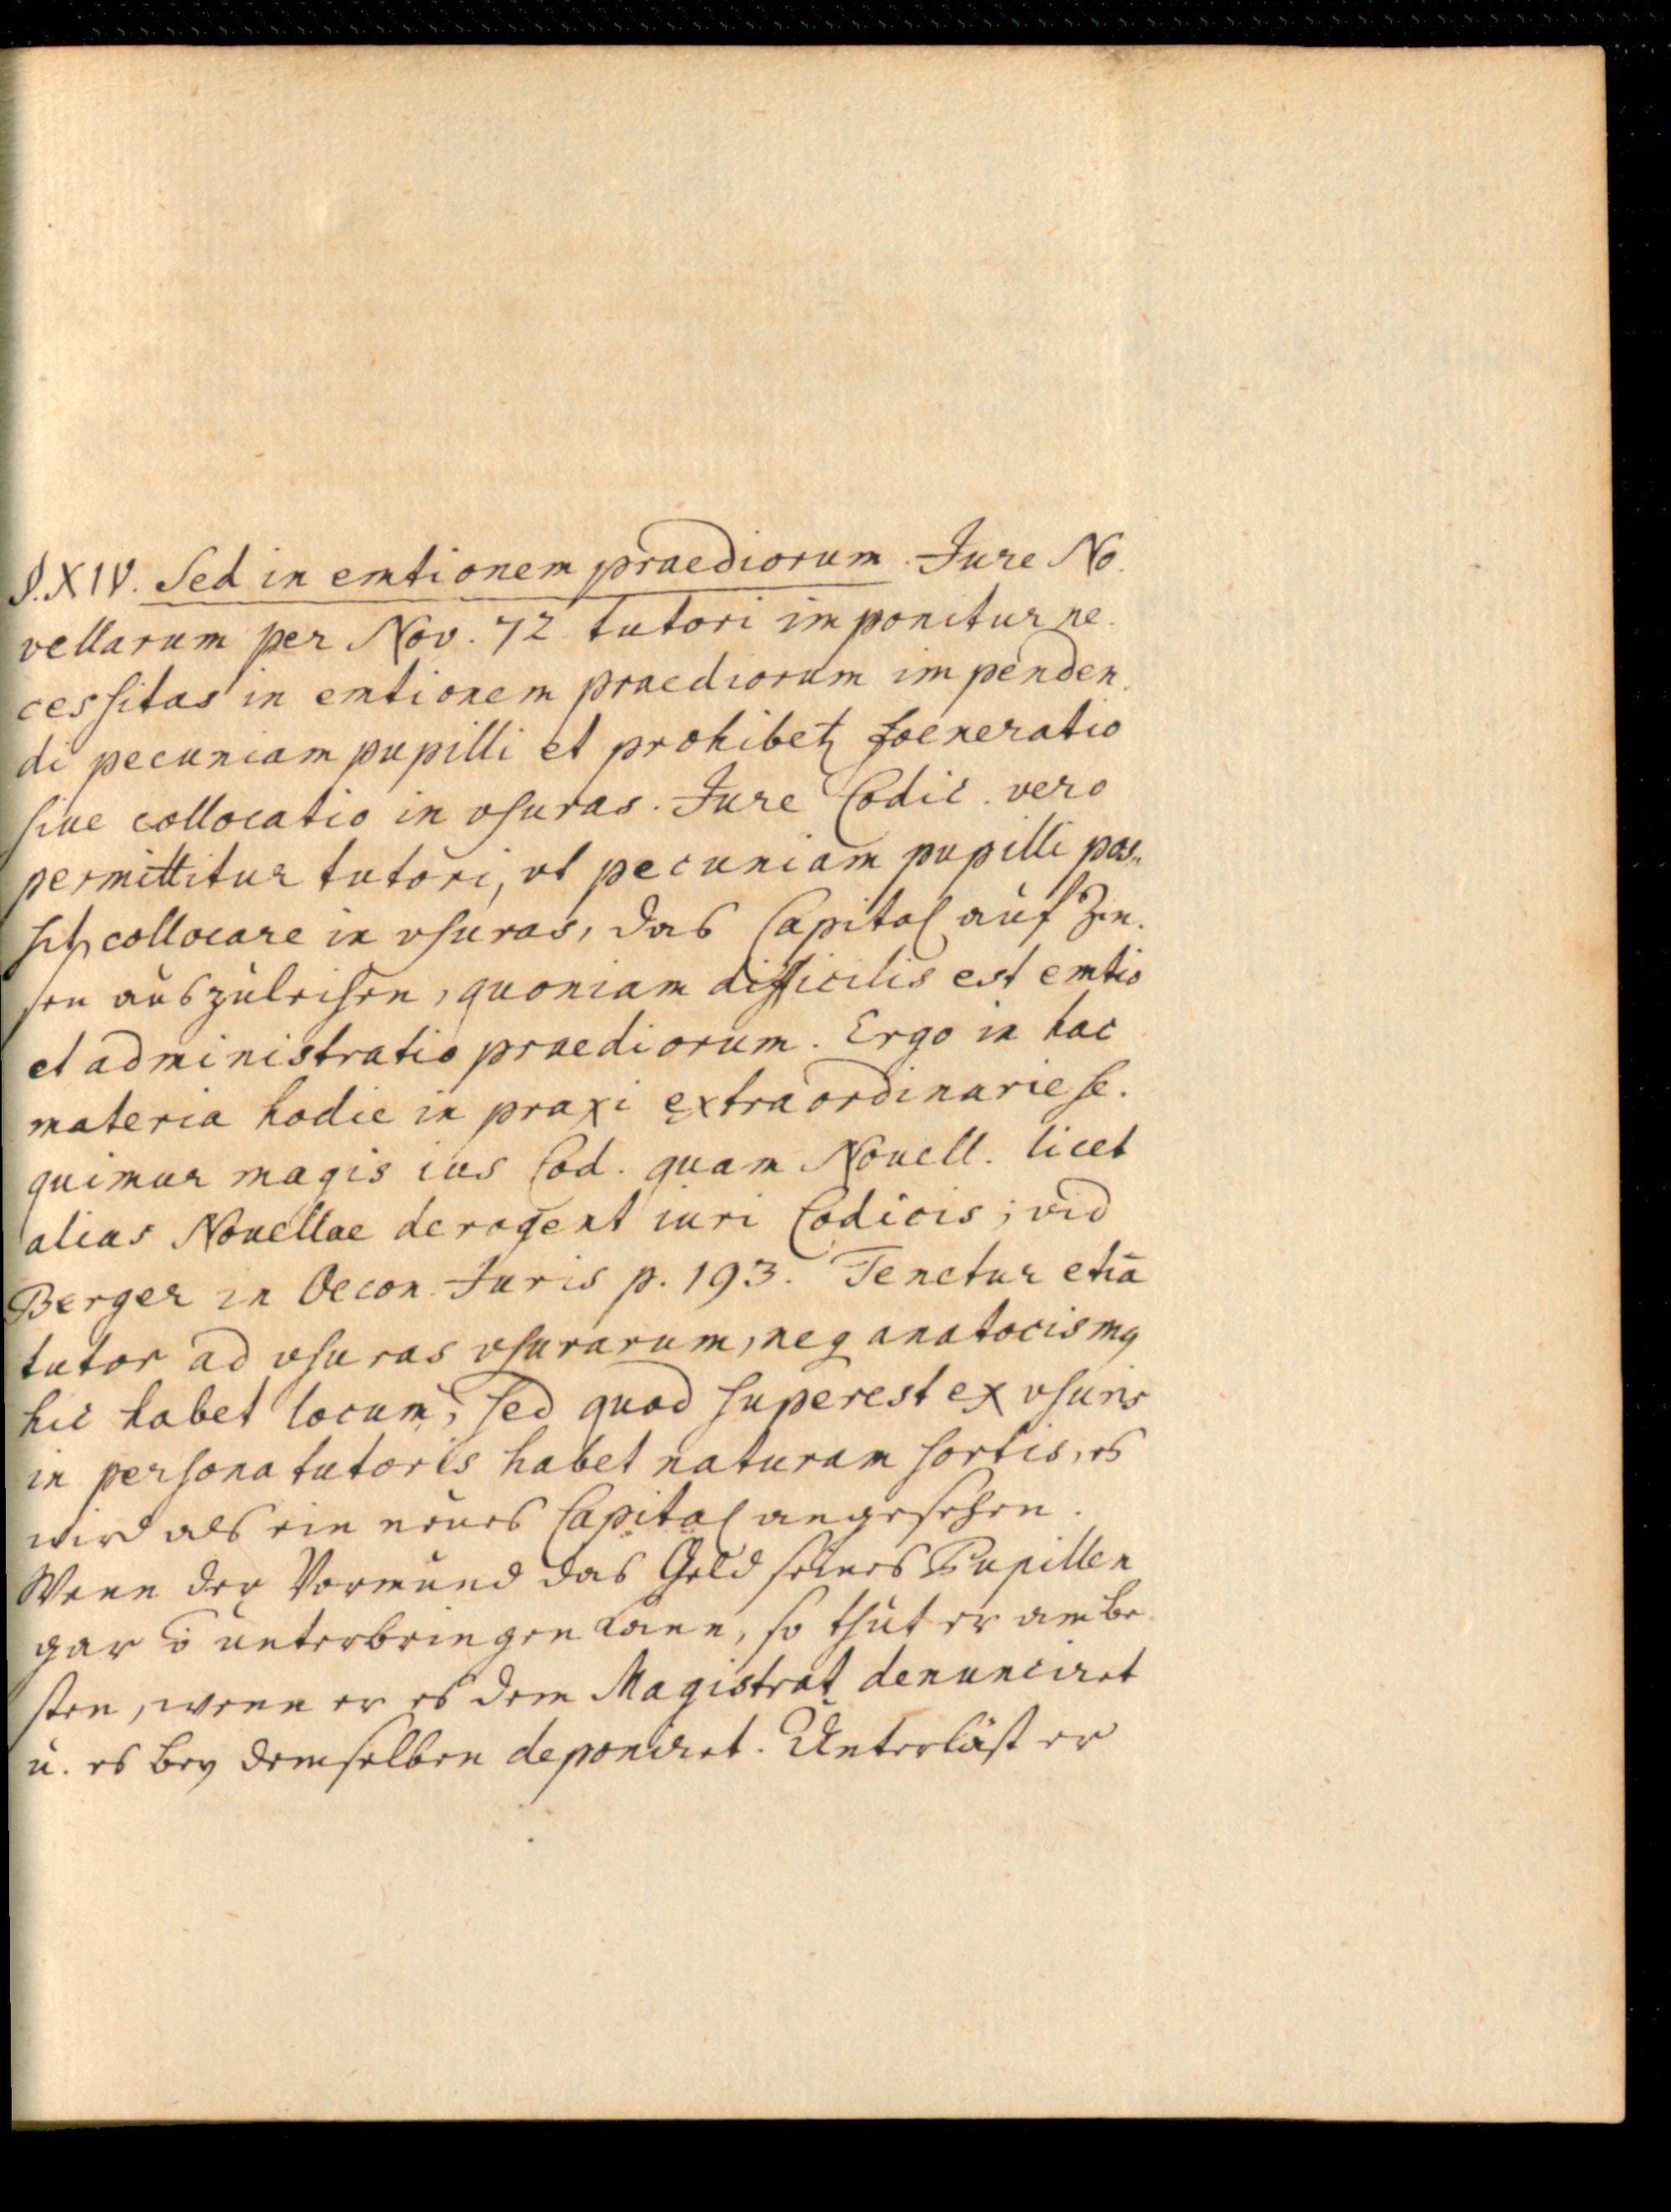 §. XIV. Sed in emtionem praediorum. Jure No-
vellarum per Nov. 72. tutori imponitur ne-
cessitas in emtionem praediorum impenden-
di pecuniam pupilli et prohibetr foeneratio
sive collocatio in vsuras. Jure Codic. vero
permittitur tutori, vt pecuniam pupilli pos-
sit collocare in vsuras, das Capital auf Zin-
sen auszuleihen, quoniam difficilis est emtio
et administratio praediorum. Ergo in hac
materia hodie in praxi extraordinarie se-
quimur magis ius Cod. quam Novell. licet
alias Novellae derogent iuri Codicis; vid
Berger in Oecon. Juris p. 193. Tenetur etiā
tutor ad vsuras vsurarum, neq anatocismq
hic habet locum, sed quod superest ex vsuris
in persona tutoris habet naturam sortis, es
wird als ein neues Capital angesehen.
Wenn der Vormund das Geld seines Pupillen
gar õ unterbringen kann, so thut er am be-
sten, wenn er es dem Magistrat denunciret
u. es bey demselben deponiret. Unterläst er